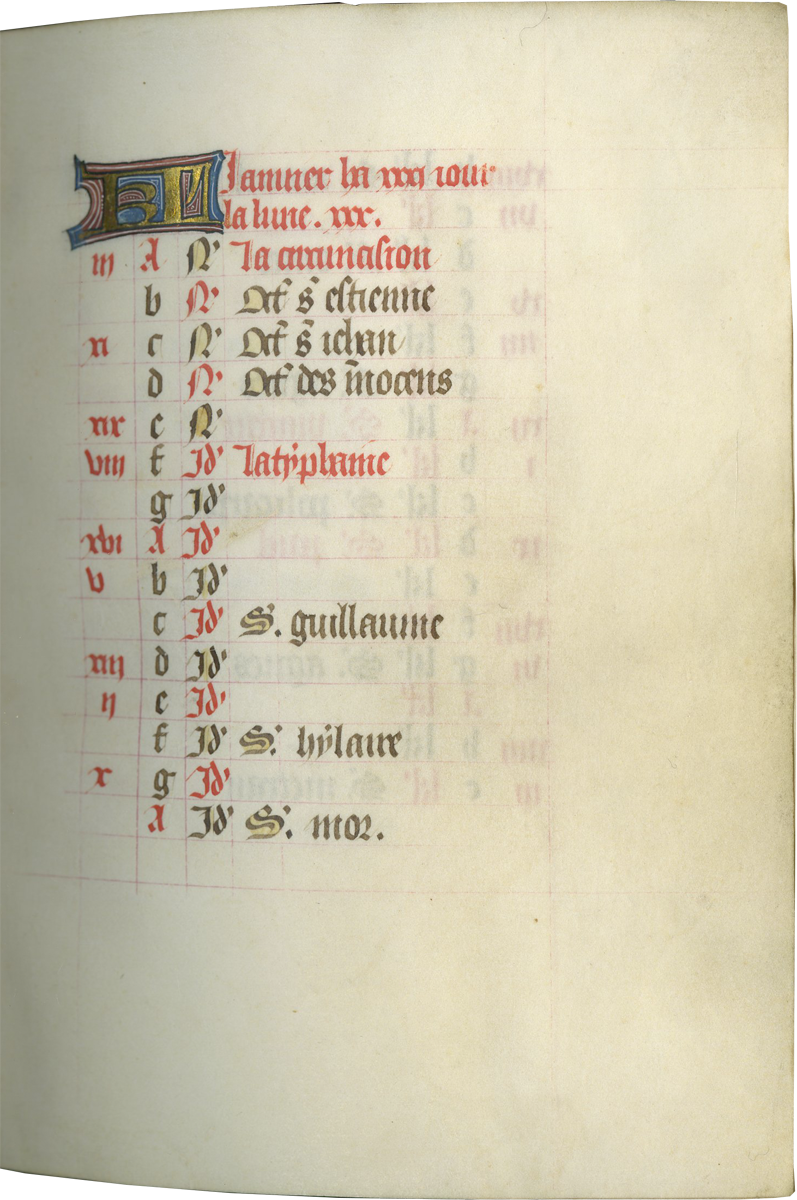 KL Januier ha xxxj iour
la lune. xxx.
iij A N' La circuncision
b N' Oct' s' estienne
xi c N' Oct' s' iehan
d N' Oct' des inocens
xix e N'
viii f Id' La typhanie
g Id'
xvi A Id'
v b Id'
c Id' S'. guillaume
xiij d Id'
ij e Id'
f Id' S'. hÿlaire
x g Id'
A Id' S'. mor.